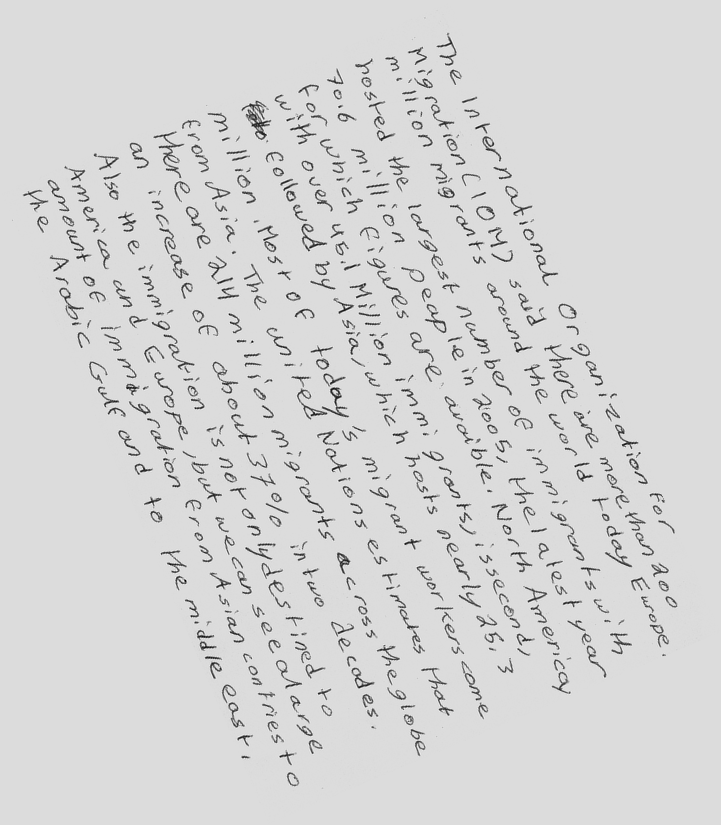 The International Organization for
Migration (IOM) said there are more than 200
million migrants around the world today Europe.
hosted the largest number of immigrants with
70.6 million peaple in 2005, the latest year
for which figures are avaible. North Americay
with over 45.1 Million immigrants, is second,
followed by Asia, which hosts nearly 25.3
million. Most of today's migrant workers come
from Asia. The united Nations estimates that
there are 214 million migrants across the globe
an increase of about 37% in two decades.
Also the immigration is not only destined to
America and Europe, but we can see a large
amount of immigration from Asian contries to
the Arabic Gulf and to the middle east.